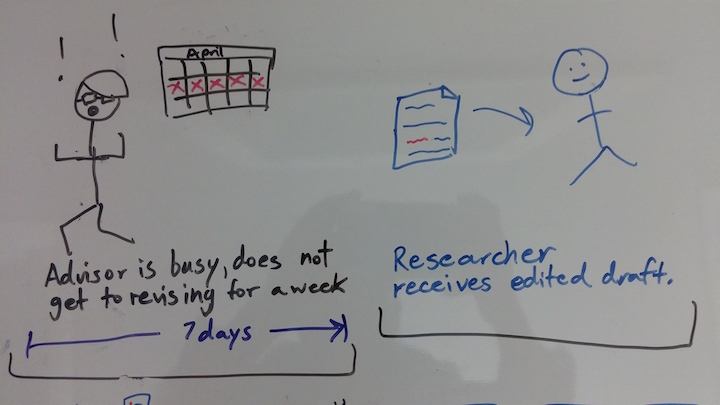 April
Advisor is busy, does not
get to revising for a week
7 days
Researcher
receives edited draft.